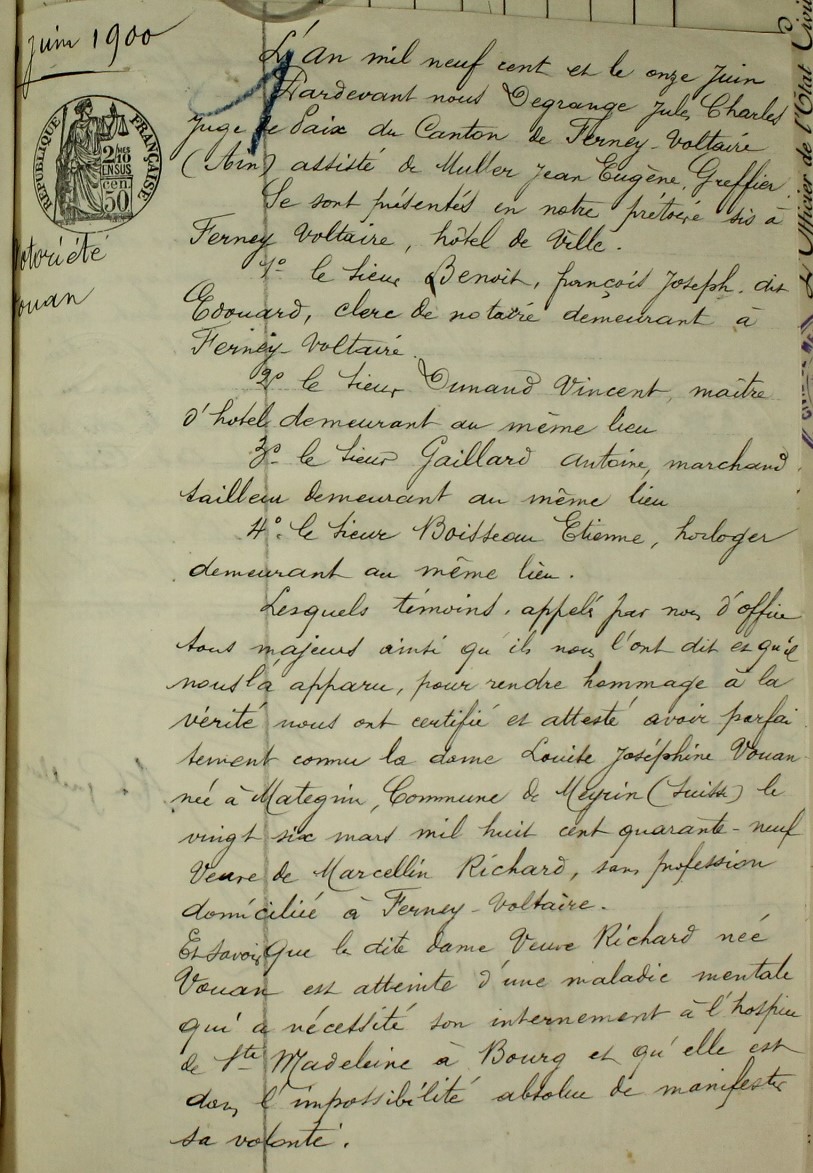 juin 1900
RÉPUBLIQUE FRANÇAISE
2/10 EN SUS
50 cen.
Notoriété
Vouan
L'an mil neuf cent et le onze Juin
Pardevant nous Degrange Jules Charles
Juge de Paix du Canton de Ferney-Voltaire
(Ain) assisté de Muller Jean Eugène, Greffier
Se sont présentés en notre prétoire sis à
Ferney Voltaire, hôtel de Ville.
1º le sieur Benoit, françois Joseph. dit
Edouard, clerc de notaire demeurant à
Ferney-Voltaire.
2º le sieur Dunand Vincent, maître
d'hotel demeurant au même lieu
3º le sieur Gaillard antoine, marchand
tailleur demeurant au même lieu
4º le sieur Boisseau Etienne, horloger
demeurant au même lieu.
Lesquels témoins, appelés par nous d'office
tous majeurs ainsi qu'ils nous l'ont dit et qu'il
nous l'a apparu, pour rendre hommage à la
vérité nous ont certifié et attesté avoir parfai
tement connu la dame Louise Joséphine Vouan
née à Mategnin, Commune de Meyrin (Suisse) le
vingt six mars mil huit cent quarante-neuf
Veuve de Marcellin Richard, sans profession
domiciliée à Ferney-Voltaire.
Et savoir que la dite dame Veuve Richard née
Vouan est atteinte d'une maladie mentale
qui a nécessité son internement à l'hospice
de Ste Madeleine à Bourg et qu'elle est
dans l'impossibilité absolue de manifester
sa volonté.
L'Officier de l'État Civil